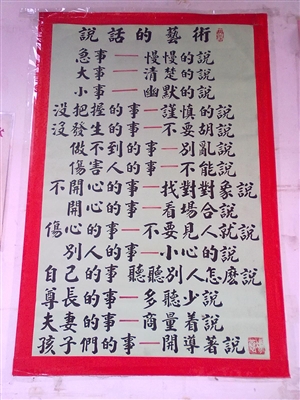 說話的藝術
急事——慢慢的說
大事——清楚的說
小事——幽默的說
沒把握的事—謹慎的說
沒發生的事—不要胡說
做不到的事—别亂說
傷害人的事—不能說
不開心的事—找對對象說
開心的事—看場合說
傷心的事—不要見人就說
别人的事—小心的說
自己的事 聽聽别人怎麽說
尊長的事—多聽少說
夫妻的事—商量着說
孩子們的事—開導著說